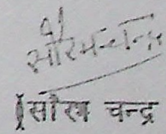 सौरभ चन्द्र
सौरभ चन्द्र